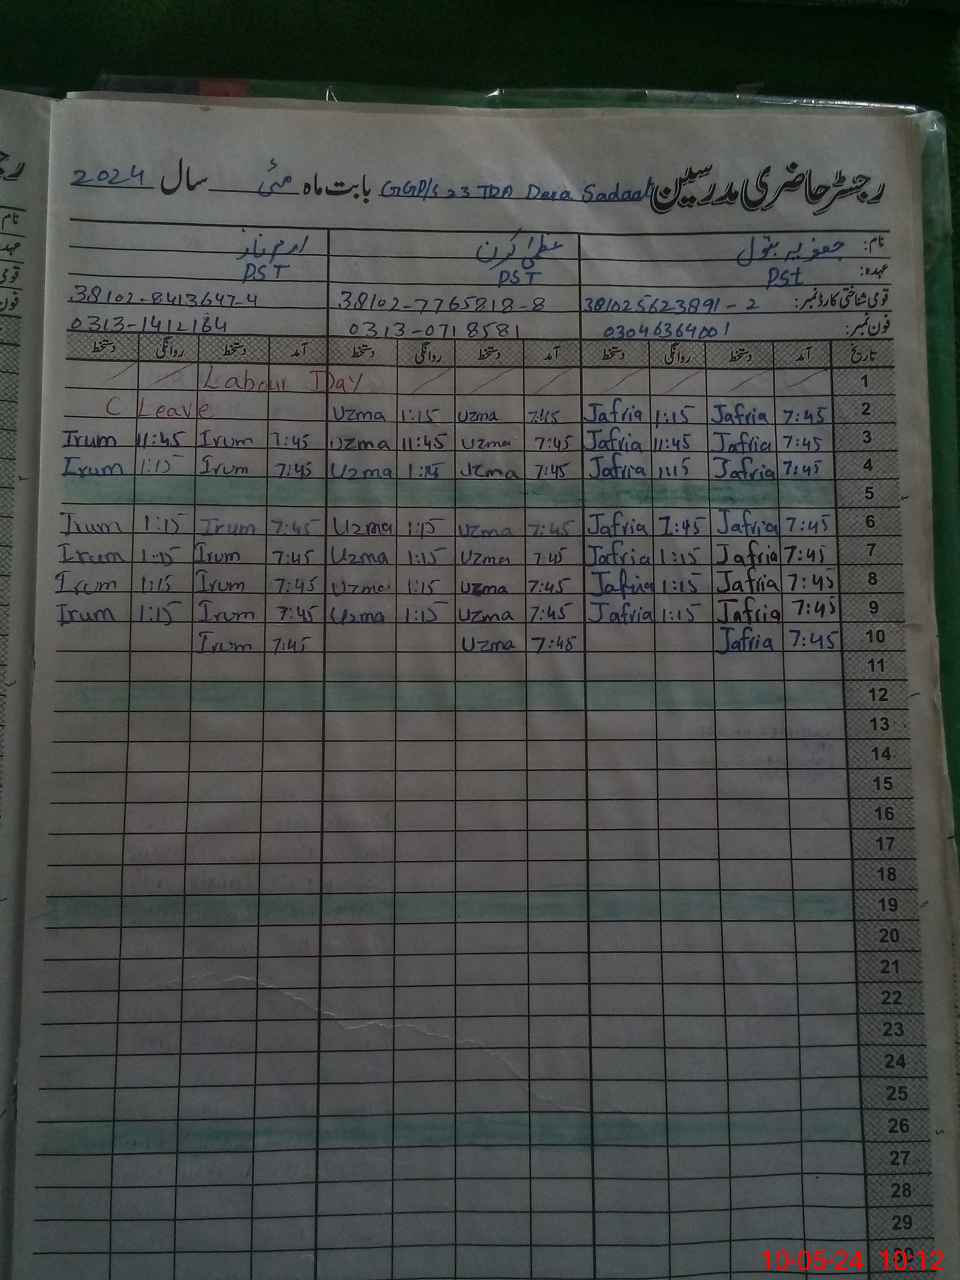 رجسٹر حاضری مدرسین GGP/S 23 TDA Dera Sadaat بابت ماہ مئی سال 2024
نام: جعفریہ بتول عظمیٰ کرن ارم ناز
عہدہ: PSt PST PST
قومی شناختی کارڈ نمبر: 381025623891-2 38102-7765818-8 38102-8413647-4
فون نمبر: 03046364001 0313-0718581 0313-1412164
تاریخ آمد دستخط روانگی دستخط آمد دستخط روانگی دستخط آمد دستخط روانگی دستخط
1 Labour Day
2 7:45 Jafria 1:15 Jafria 7:45 Uzma 1:15 Uzma C Leave
3 7:45 Jafria 11:45 Jafria 7:45 Uzma 11:45 Uzma 7:45 Irum 11:45 Irum
4 7:45 Jafria 1:15 Jafria 7:45 Uzma 1:15 Uzma 7:45 Irum 1:15 Irum
5
6 7:45 Jafria 7:45 Jafria 7:45 Uzma 1:15 Uzma 7:45 Irum 1:15 Irum
7 7:45 Jafria 1:15 Jafria 7:45 Uzma 1:15 Uzma 7:45 Irum 1:15 Irum
8 7:45 Jafria 1:15 Jafria 7:45 Uzma 1:15 Uzma 7:45 Irum 1:15 Irum
9 7:45 Jafria 1:15 Jafria 7:45 Uzma 1:15 Uzma 7:45 Irum 1:15 Irum
10 7:45 Jafria 7:45 Uzma 7:45 Irum
11
12
13
14
15
16
17
18
19
20
21
22
23
24
25
26
27
28
29
30
10-05-24 10:12